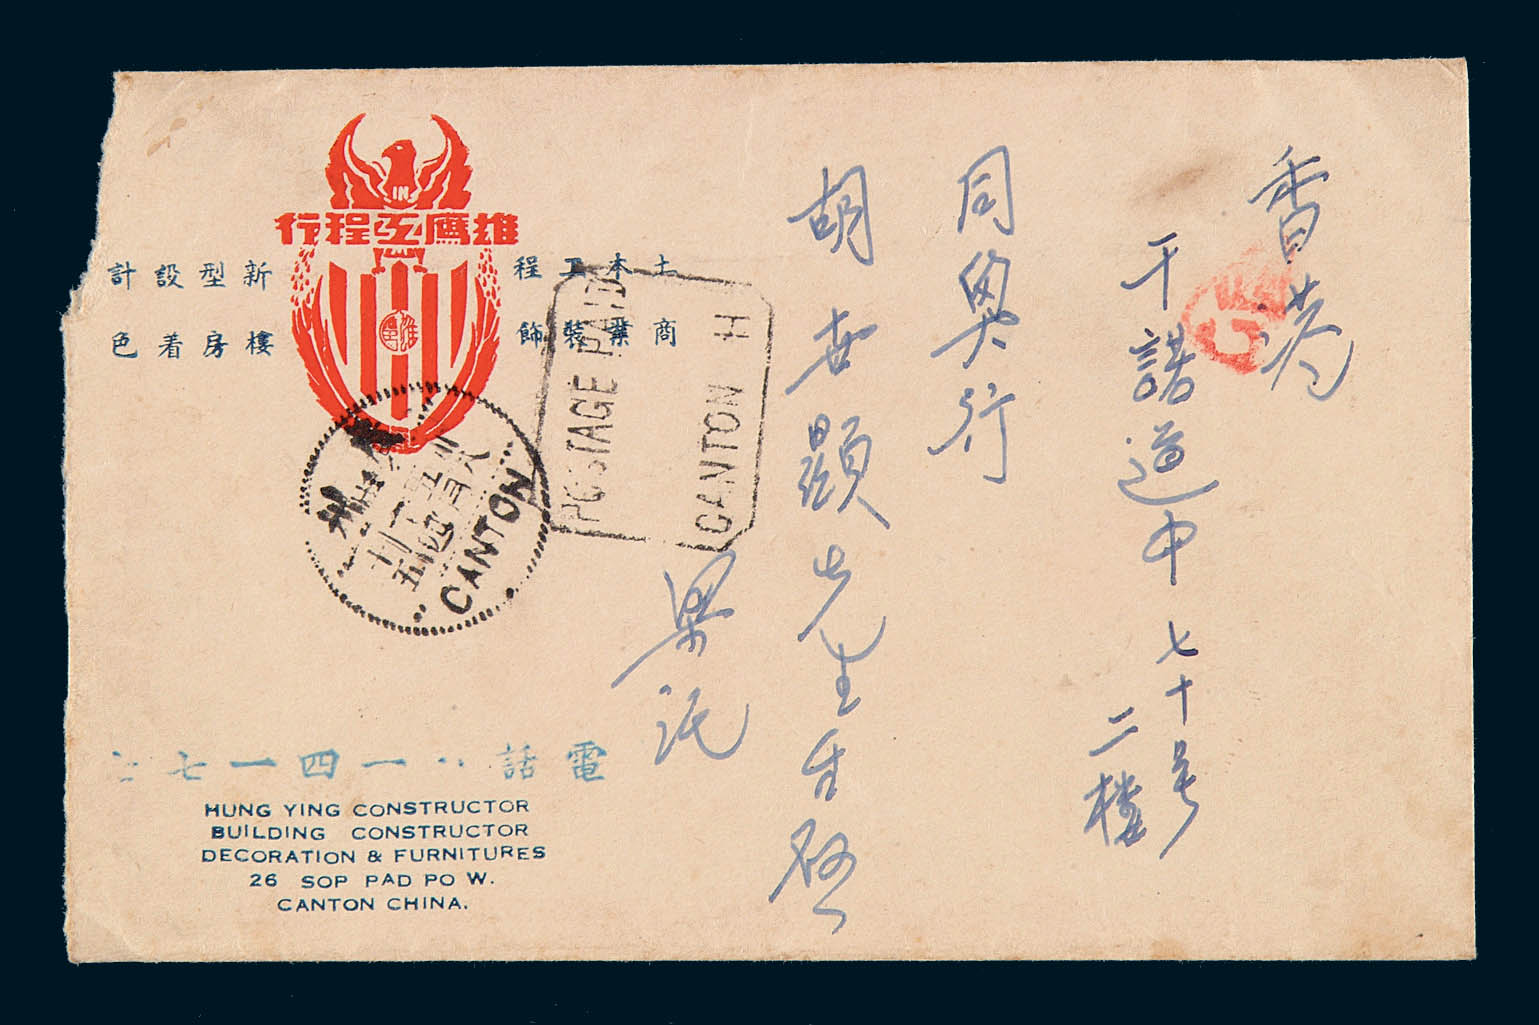 雄鷹工程行
土木工程
商業裝飾
新型設計
樓房着色
POSTAGE PAID
CANTON H
廣州
CANTON
香港
干諾道中七十号
二樓
同興行
胡世顯先生台啓
梁託
電話
一四一七七
HUNG YING CONSTRUCTOR
BUILDING CONSTRUCTOR
DECORATION & FURNITURES
26 SOP PAD PO W.
CANTON CHINA.